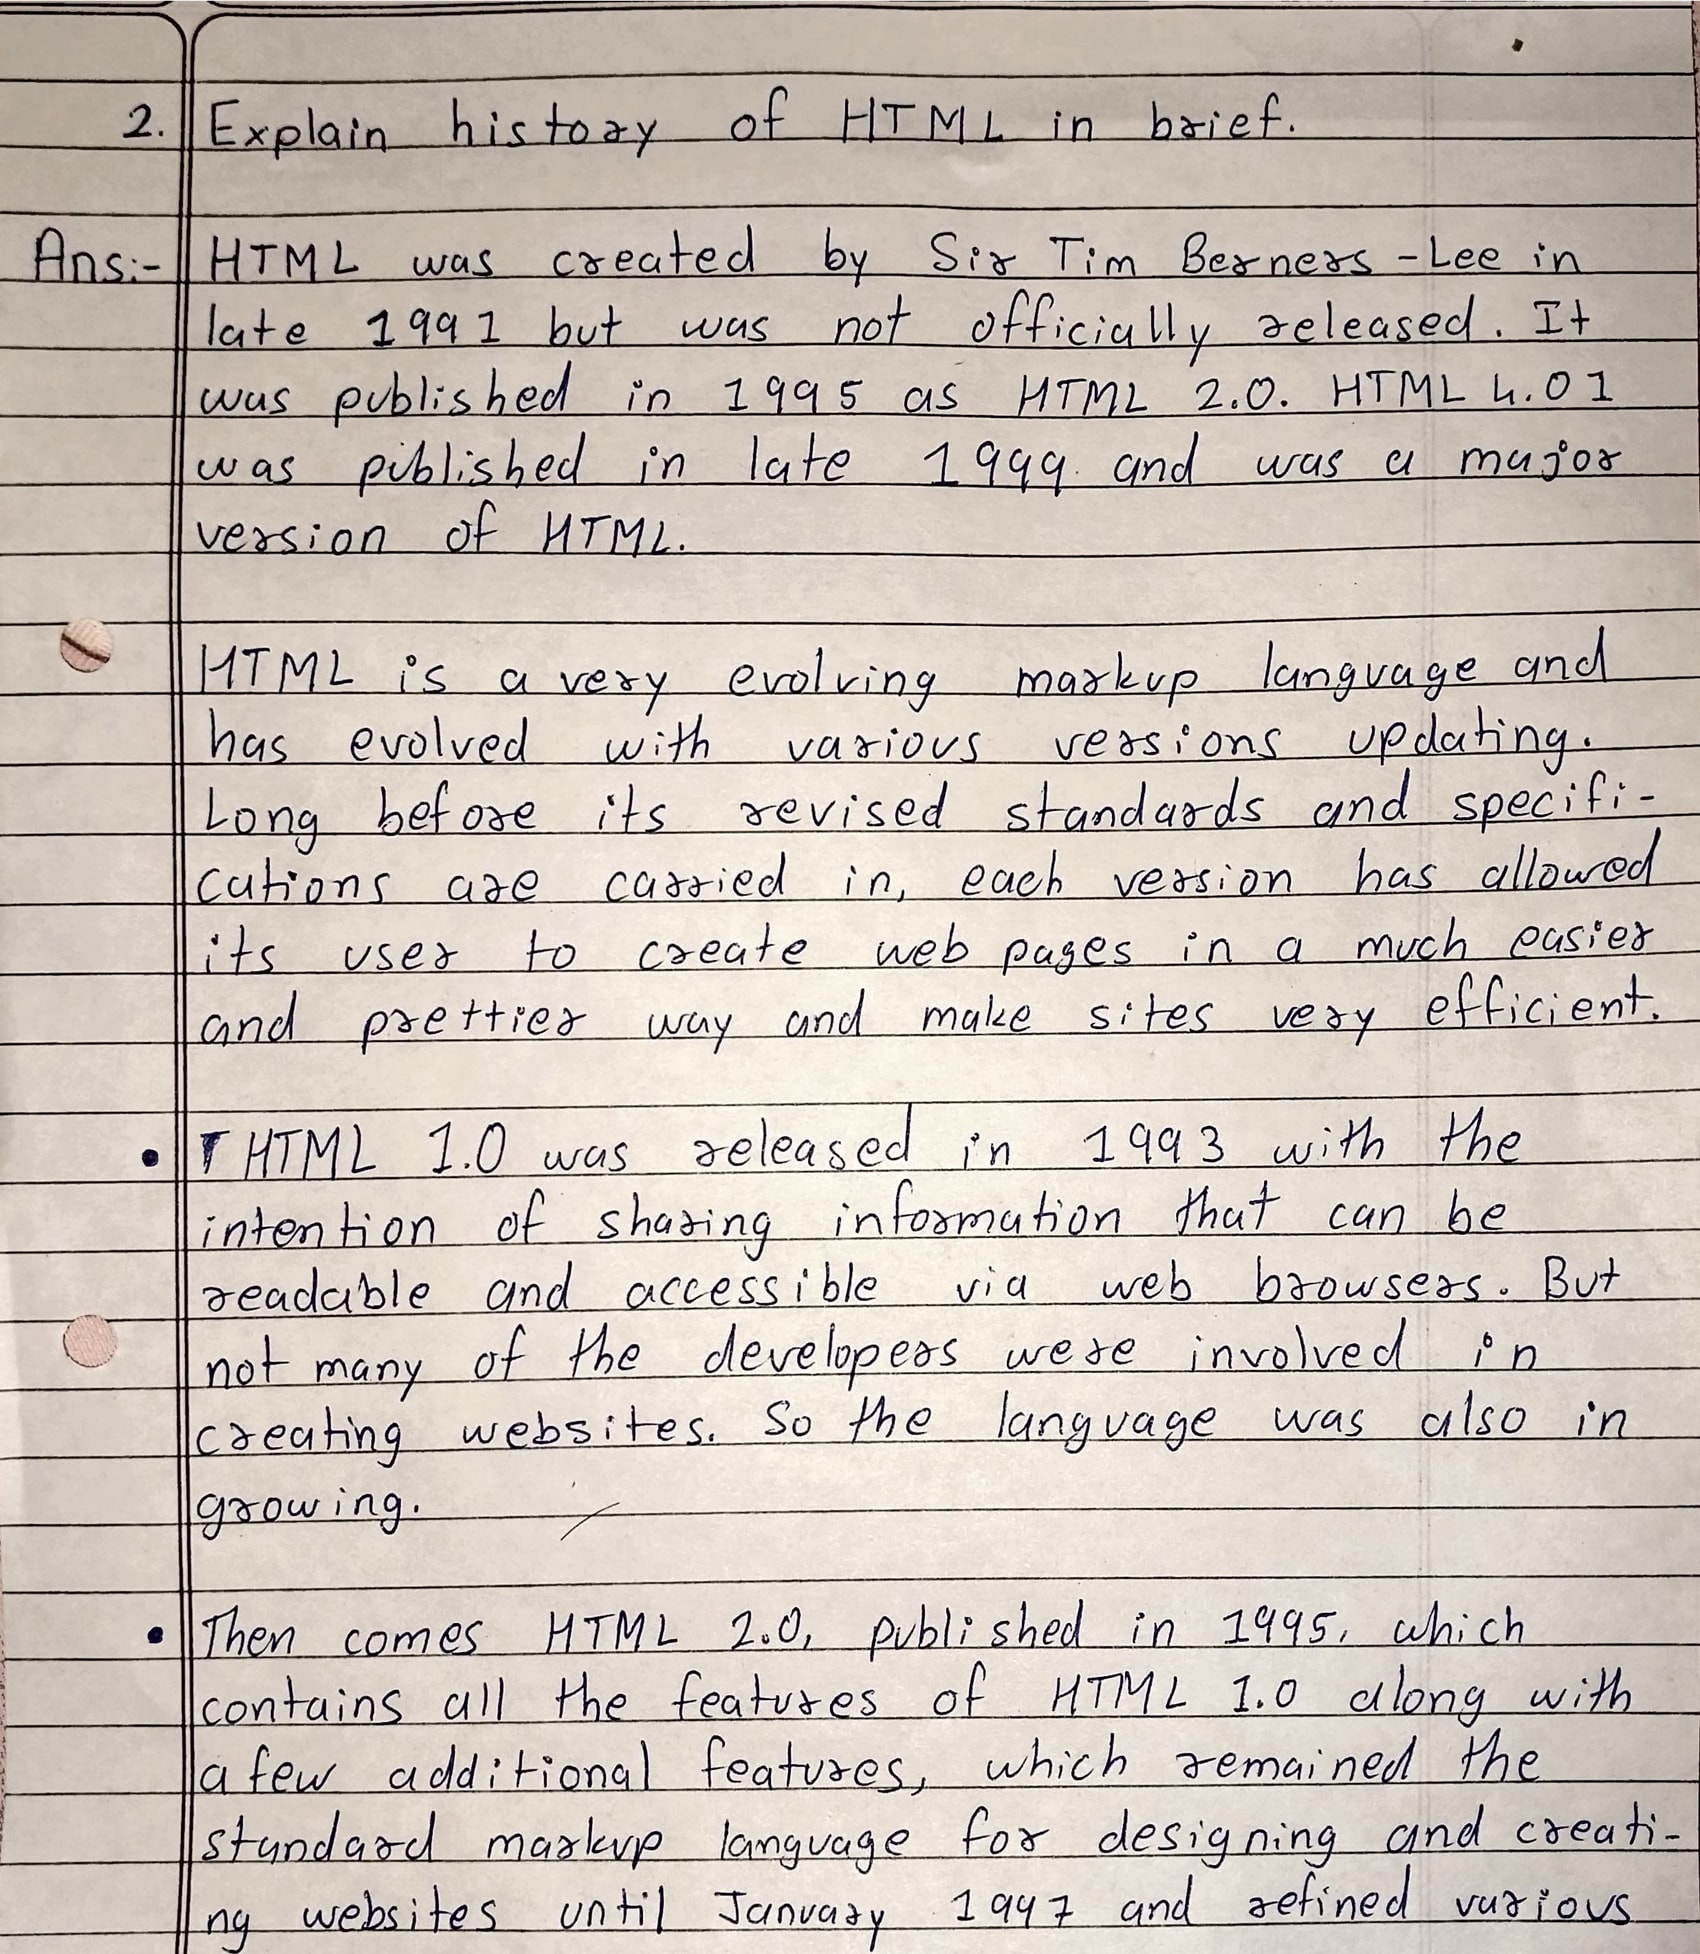 2. Explain history of HTML in brief.
Ans:- HTML was created by Sir Tim Berners-Lee in
late 1991 but was not officially released. It
was published in 1995 as HTML 2.0. HTML 4.01
was published in late 1999 and was a major
version of HTML.
HTML is a very evolving markup language and
has evolved with various versions updating.
Long before its revised standards and specifi-
cations are carried in, each version has allowed
its user to create web pages in a much easier
and prettier way and make sites very efficient.
• HTML 1.0 was released in 1993 with the
intention of sharing information that can be
readable and accessible via web browsers. But
not many of the developers were involved in
creating websites. So the language was also in
growing.
• Then comes HTML 2.0, published in 1995, which
contains all the features of HTML 1.0 along with
a few additional features, which remained the
standard markup language for designing and creati-
ng websites until January 1997 and refined various